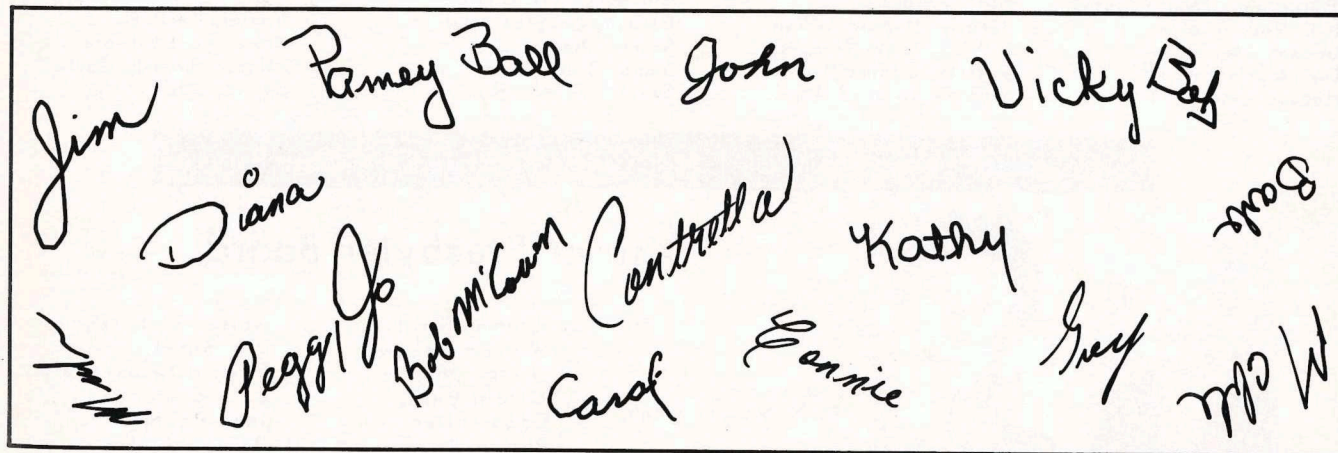 Jim
Pamey Ball
John
Vicky
Diana
Kathy
Peggy Jo
Bob McCown
Contrella
Carol
Connie
Greg